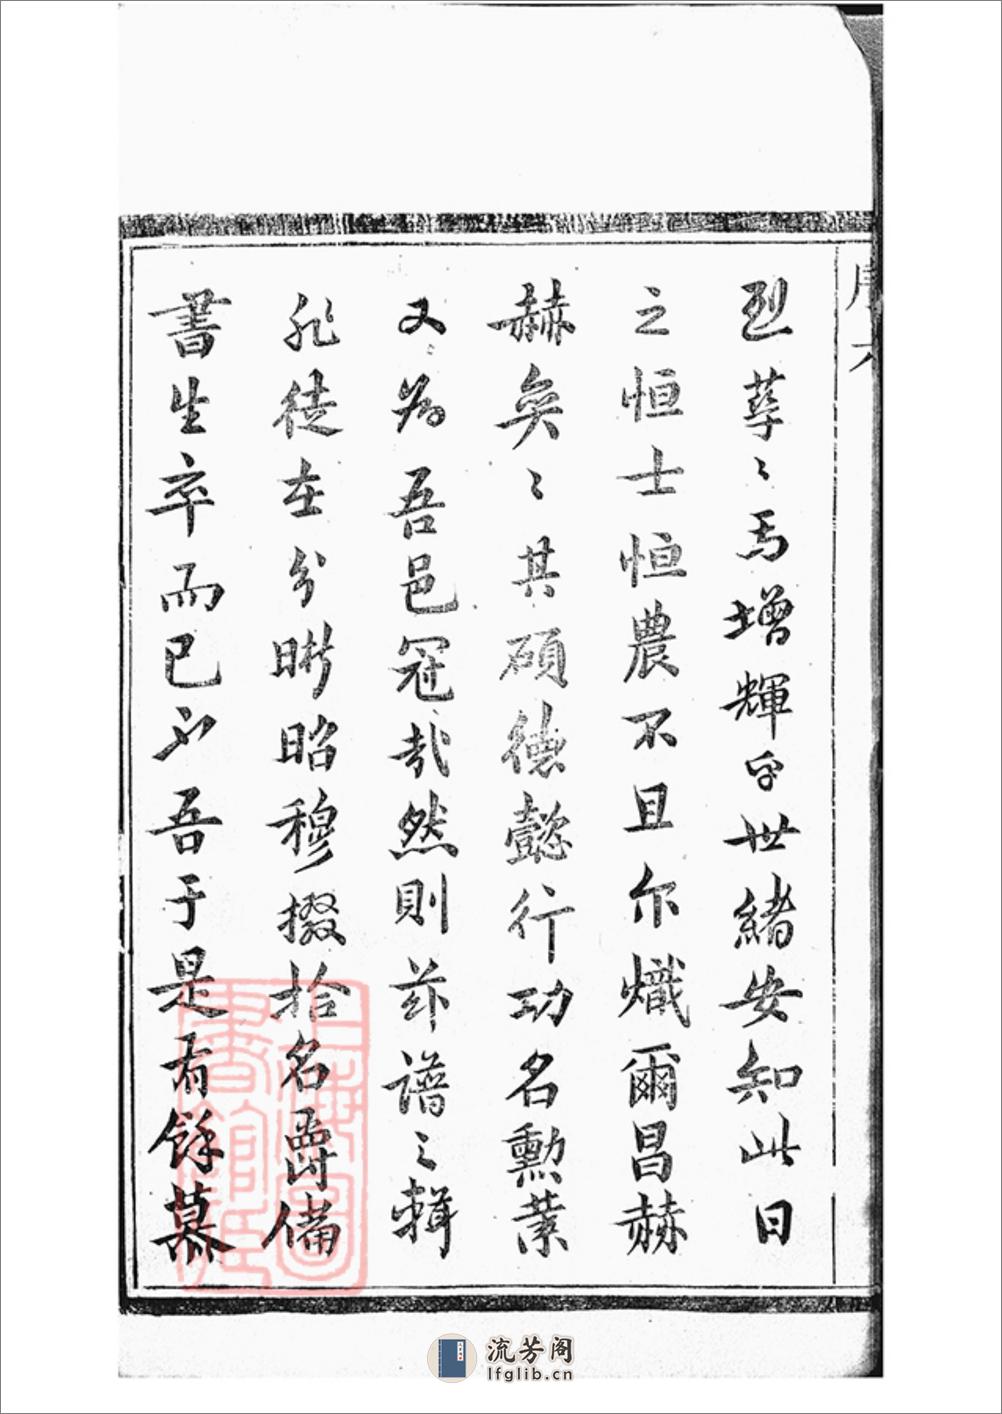 烈莩〻焉增輝乎世緒安知此日
之恒士恒農不且尔熾爾昌赫
赫奐〻其碩德懿行功名勲業
又為吾邑冠哉然則茲譜之輯
非徒在分晰昭穆掇拾名爵備
書生卒而已乎吾于是有餘慕
上海圖
書館藏
流芳阁
lfglib.cn